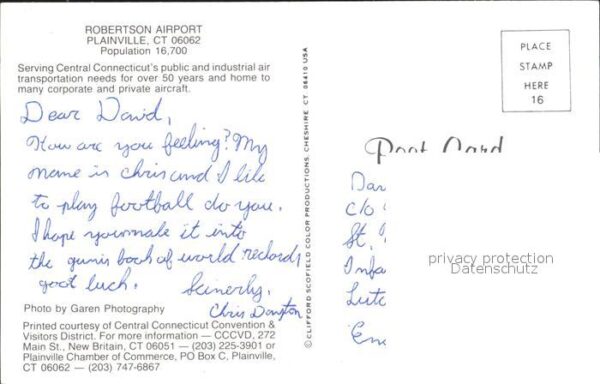 ROBERTSON AIRPORT
PLAINVILLE, CT 06062
Population 16,700
Serving Central Connecticut's public and industrial air
transportation needs for over 50 years and home to
many corporate and private aircraft.
Dear David,
How are you feeling? My
name is Chris and I like
to play football do you.
I hope you make it into
the gunis book of world records
goot luck. Scinerly,
Chris
Photo by Garen Photography
Printed courtesy of Central Connecticut Convention &
Visitors District. For more information — CCCVD, 272
Main St., New Britain, CT 06051 — (203) 225-3901 or
Plainville Chamber of Commerce, PO Box C, Plainville,
CT 06062 — (203) 747-6867
©CLIFFORD SCOFIELD COLOR PRODUCTIONS, CHESHIRE CT 06410 USA
PLACE
STAMP
HERE
16
Post Card
Dav
c/o
St.
Infa
Lut
En
privacy protection
Datenschutz